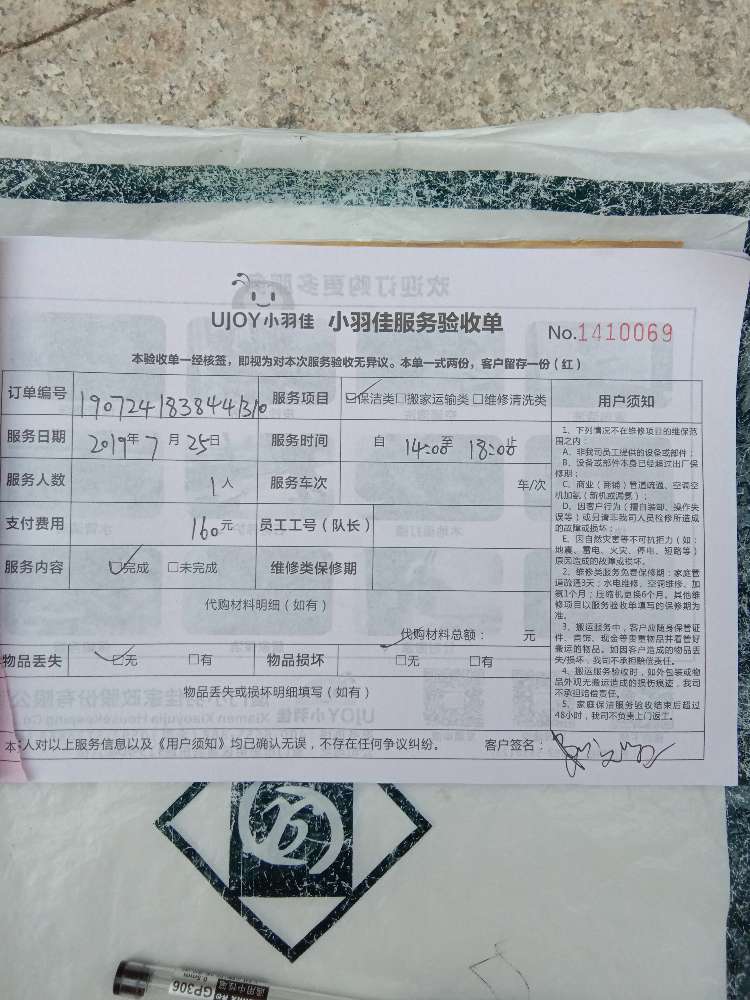 UJOY小羽佳 小羽佳服务验收单 No.1410069
本验收单一经核签，即视为对本次服务验收无异议。本单一式两份，客户留存一份（红）
订单编号 1907241838441310 服务项目 ☑保洁类□搬家运输类□维修清洗类
服务日期 2019年7月25日 服务时间 自14:00至18:00止
服务人数 1人 服务车次 车/次
支付费用 160元 员工工号（队长）
服务内容 ☑完成 □未完成 维修类保修期
代购材料明细（如有）
代购材料总额： 元
物品丢失 ☑无 □有 物品损坏 □无 □有
物品丢失或损坏明细填写（如有）
本人对以上服务信息以及《用户须知》均已确认无误，不存在任何争议纠纷。 客户签名：
用户须知
1、下列情况不在维修项目的维保范
围之内：
A、非我司员工提供的设备或部件；
B、设备或部件本身已经超过出厂保
修期；
C、商业（商铺）管道疏通、空调空
机加氨（新机或漏氨）；
D、因客户行为（擅自装卸、操作失
误等）或另请非我司人员检修所造成
的故障或损坏；
E、因自然灾害等不可抗拒力（如：
地震、雷电、火灾、停电、短路等）
原因造成的故障或损坏。
2、维修类服务免费保修期：家庭管
道疏通3天；水电维修、空调维修、加
氨1个月；压缩机更换6个月。其他维
修项目以服务验收单填写的保修期为
准。
3、搬运服务中，客户应随身保管证
件、首饰、现金等贵重物品并看管好
搬运的物品。如因客户造成的物品丢
失/损坏，我司不承担赔偿责任。
4、搬运服务验收时，如外包装或物
品外观无搬运造成的损伤痕迹，我司
不承担赔偿责任。
5、家庭保洁服务验收结束后超过
48小时，我司不负责上门返工。
GP306
通用中性笔
0.5mm